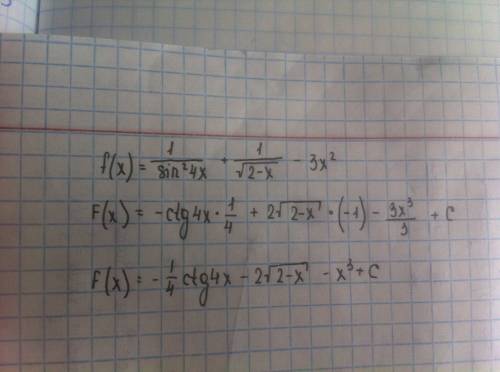 f(x) = 1/sin²4x + 1/√(2-x) - 3x²
F(x) = -ctg4x · 1/4 + 2√(2-x) · (-1) - 3x³/3 + C
F(x) = -1/4 ctg4x - 2√(2-x) - x³ + C